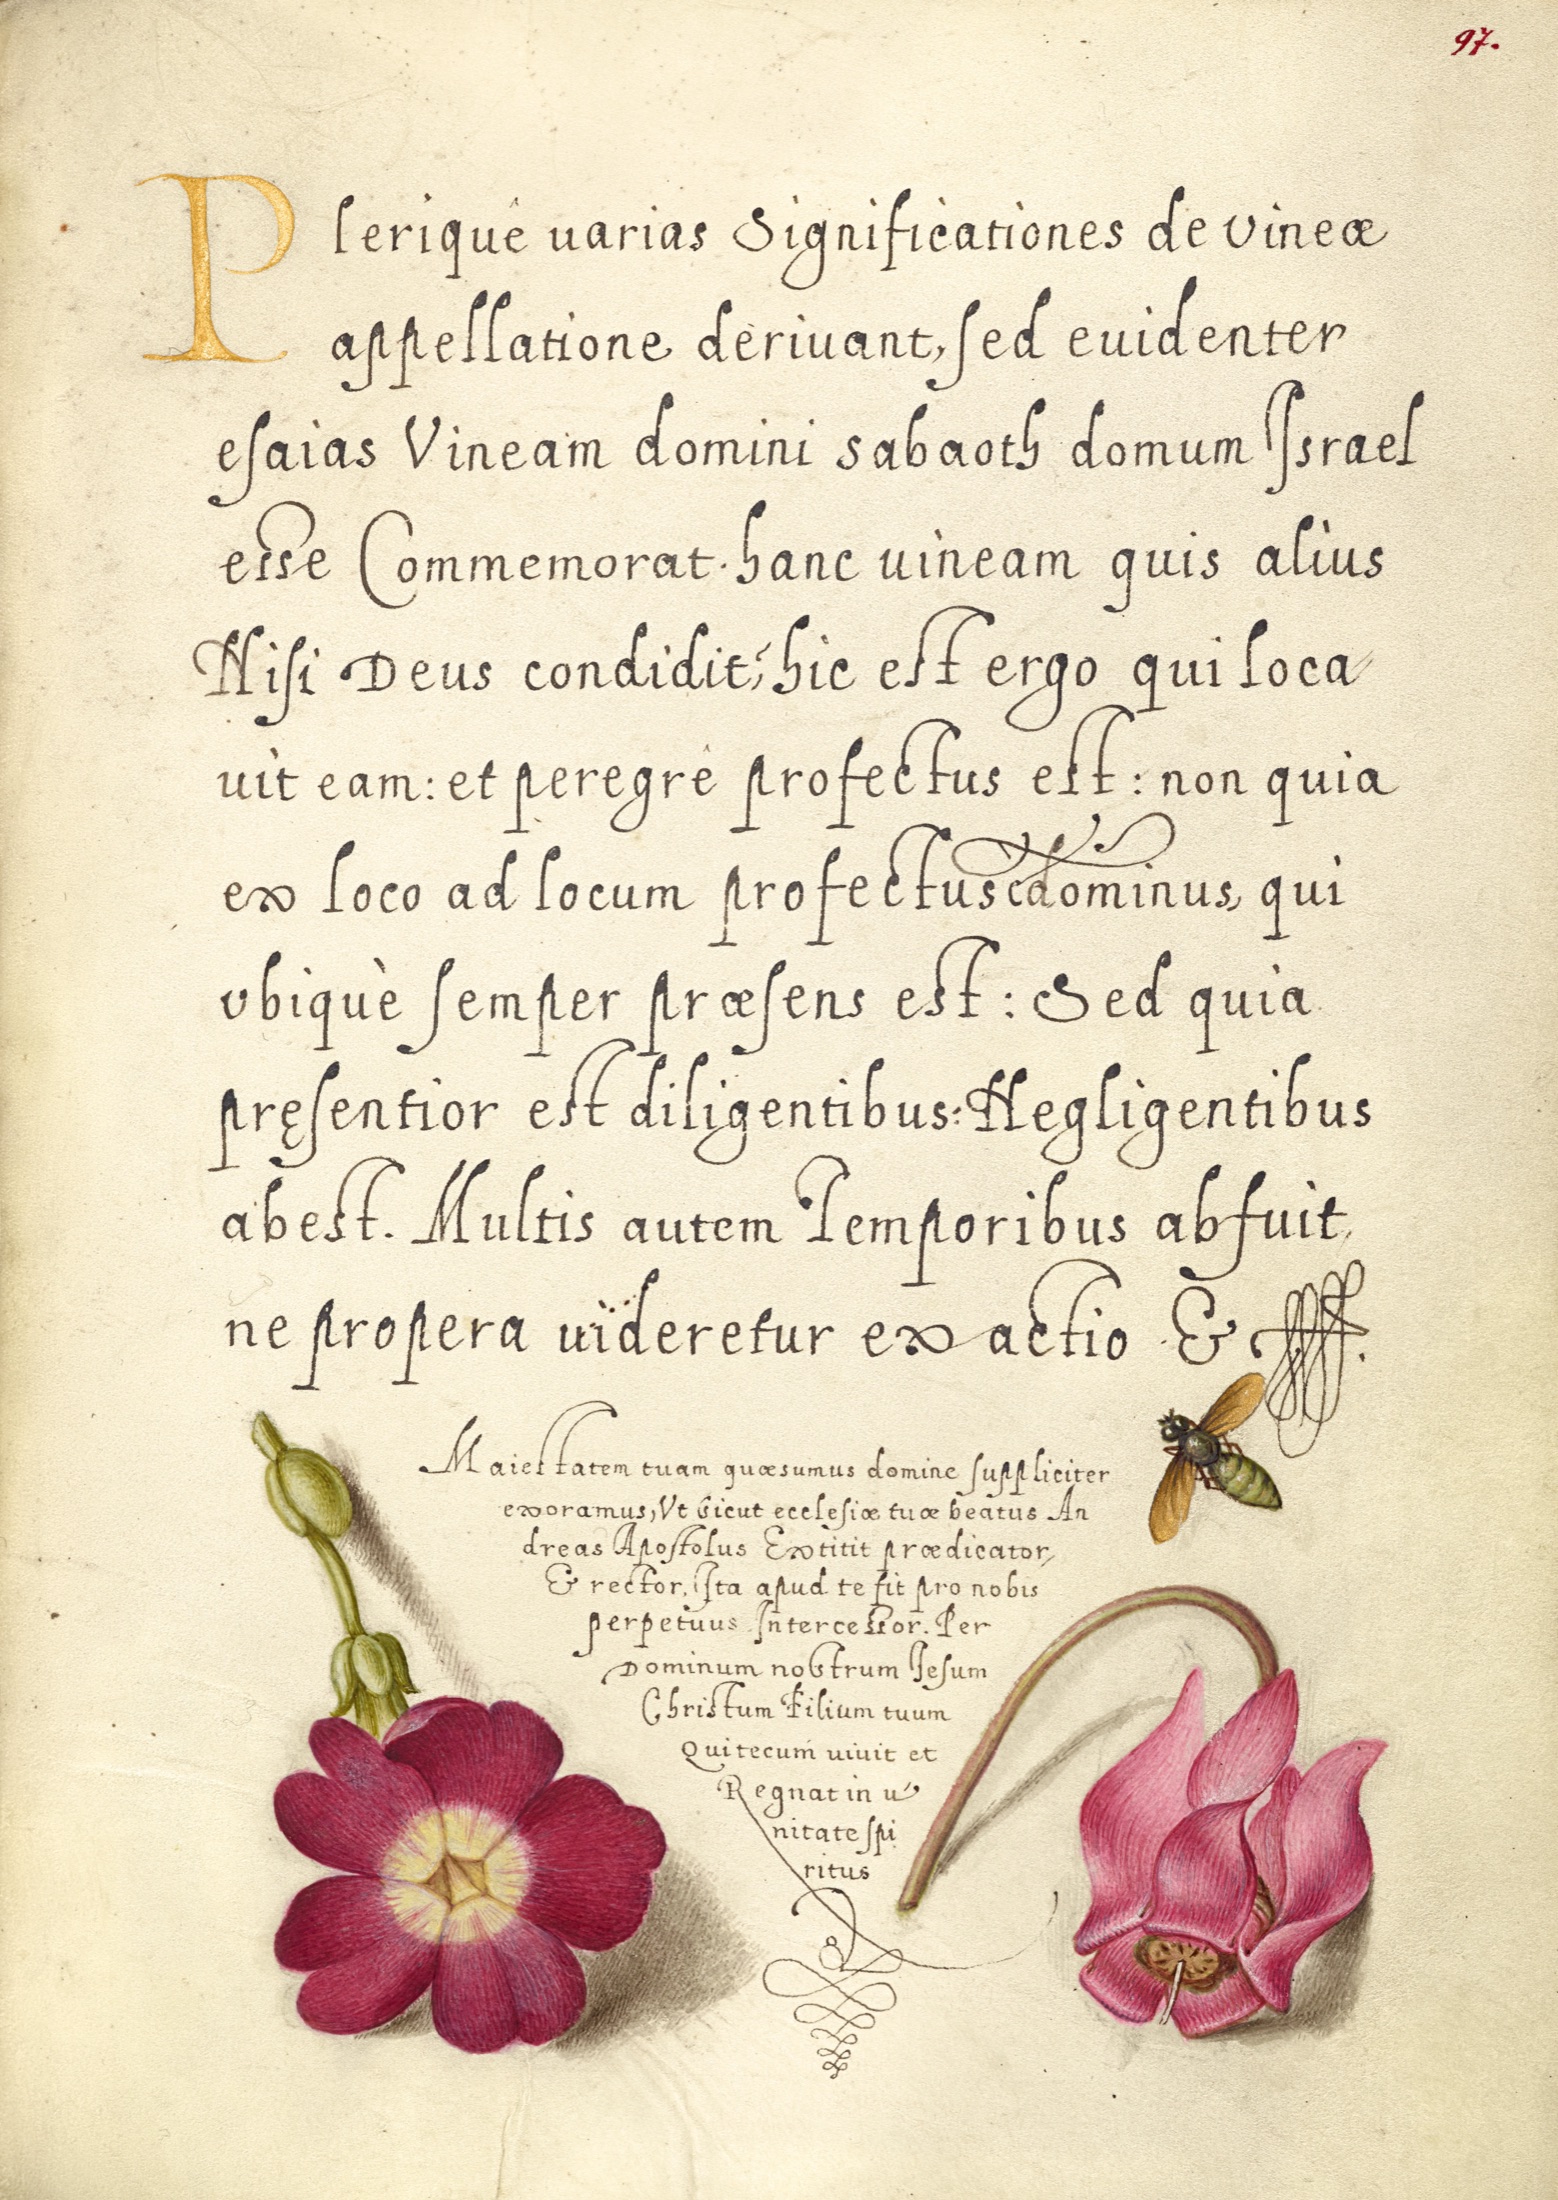 97.
Pleriquè uarias Significationes de vineæ
appellatione deriuant, sed euidenter
esaias Vineam domini sabaoth domum Israel
esse Commemorat. hanc uineam quis alius
Nisi Deus condidit; hic est ergo qui loca
uit eam: et peregrè profectus est: non quia
ex loco ad locum profectus dominus, qui
vbiquè semper præsens est: Sed quia
pręsentior est diligentibus: Negligentibus
abest. Multis autem Temporibus abfuit,
ne propera uideretur exactio &
Maiestatem tuam quæsumus domine suppliciter
exoramus, Vt sicut ecclesiæ tuæ beatus An
dreas Apostolus Extitit prædicator,
& rector, Ita apud te sit pro nobis
perpetuus Intercessor. Per
Dominum nostrum Iesum
Christum Filium tuum
Qui tecum uiuit et
Regnat in u
nitate spi
ritus